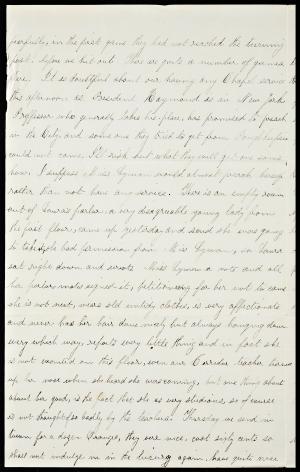 perfectly, in the first game they had not reached the turning
post, before us but out. There are quite a number of guinea
here. It is doubtful about our having any Chapel service
this afternoon as President Raymond is in New York
Professor who generally takes his place, has promised to preach
in the City and some one they tried to get from Poughkeepsie
could not come. I'll risk but what they will get one some
how. I suppose Miss Lyman would almost preach herself
rather than not have any service. There is an empty room
out of Laura's parlor. a very disagreeable young lady from
the first floor, came up yesterday and said she was going
to take it, she had permission from Miss Lyman, so Laura
sat right down and wrote Miss Lyman a note and all
her parlor mates signed it, petitioning for her not to come
she is not neat, wears old untidy clothes, is very affectionate
and never has her hair done nicely but always hanging down
every which way, reports every little thing and in fact she
is not wanted on this floor, even our Corridor teacher
up her nose when she heard she was coming, but one thing about
about her good, is the fact that she is very studious, so of course
is not thought so badly by the teachers. Thursday we send in
town for a dozen Oranges, they were nice, cost sixty cents so
shall not indulge me in the luxury again, have quite nice